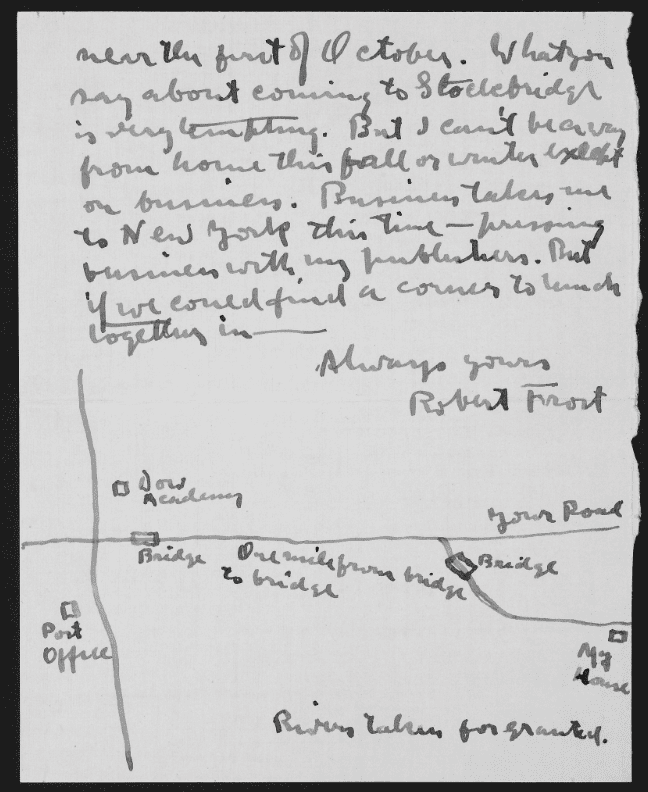 near the first of October. What you
say about coming to Stockbridge
is very tempting. But I can't be away
from home this fall or winter except
on business. Business takes me
to New York this time — pressing
business with my publishers. But
if we could find a corner to lunch
together in ——
Always yours
Robert Frost
Dow
Academy
Your Road
Bridge
One mile from bridge
to bridge
Bridge
Post
Office
My
House
Rivers taken for granted.